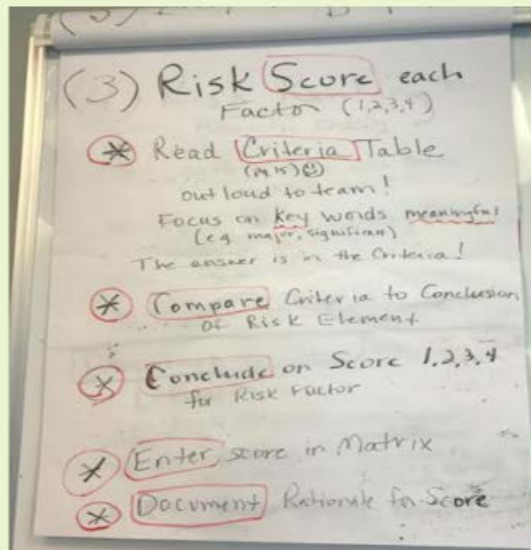 (3) Risk Score each
Factor (1,2,3,4)
* Read Criteria Table
out loud to team!
Focus on key words meaningful
(e.g. major, significant)
The answer is in the Criteria!
* Compare Criteria to Conclusion
of Risk Element
* Conclude on Score 1,2,3,4
for Risk Factor
* Enter score in Matrix
* Document Rationale for Score